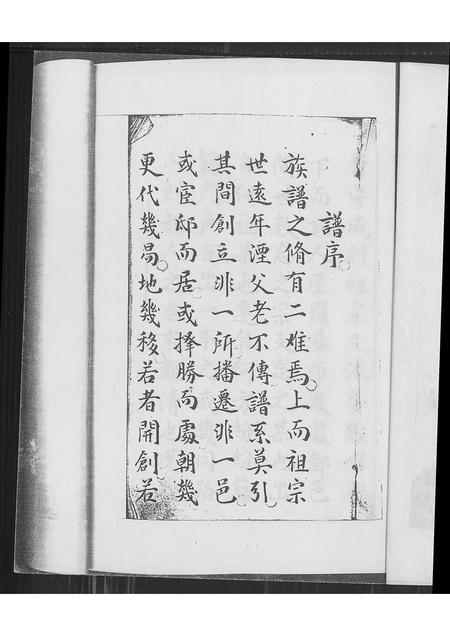 譜序
族譜之脩有二难焉上而祖宗
世遠年湮父老不傳譜系莫引
其間創立非一所播遷非一邑
或宦邸而居或擇勝而處朝幾
更代幾易地幾移若者開創若